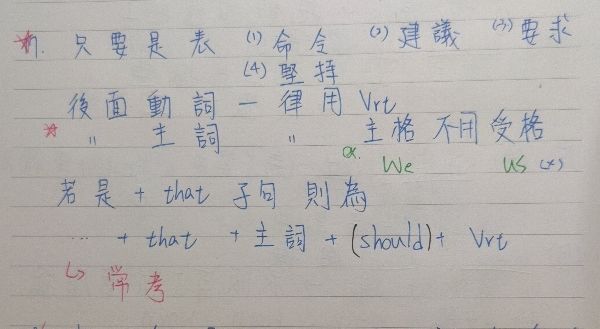 *1. 只要是表 (1)命令 (2)建議 (3)要求
(4)堅持
後面動詞一律用Vrt
* 〃 主詞 〃 主格 不用受格
ex. We us (x)
若是 + that 子句 則為
… + that + 主詞 + (should) + Vrt
↳ 常考